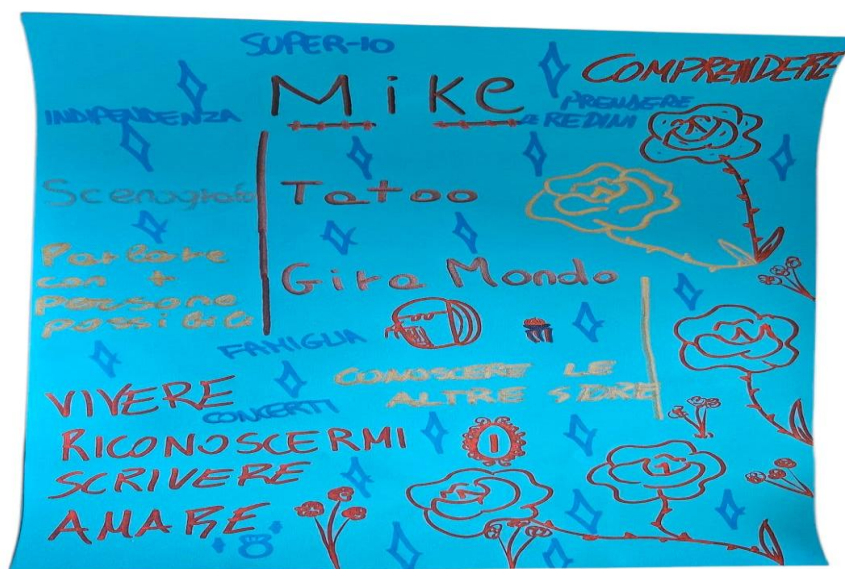 SUPER-IO
COMPRENDERE
Mike
INDIPENDENZA
PRENDERE
LE REDINI
Scenografo
Tatoo
Parlare
con +
persone
possibili
Gira Mondo
FAMIGLIA
CONOSCERE LE
ALTRE
VIVERE
CONCERTI
RICONOSCERMI
SCRIVERE
AMARE